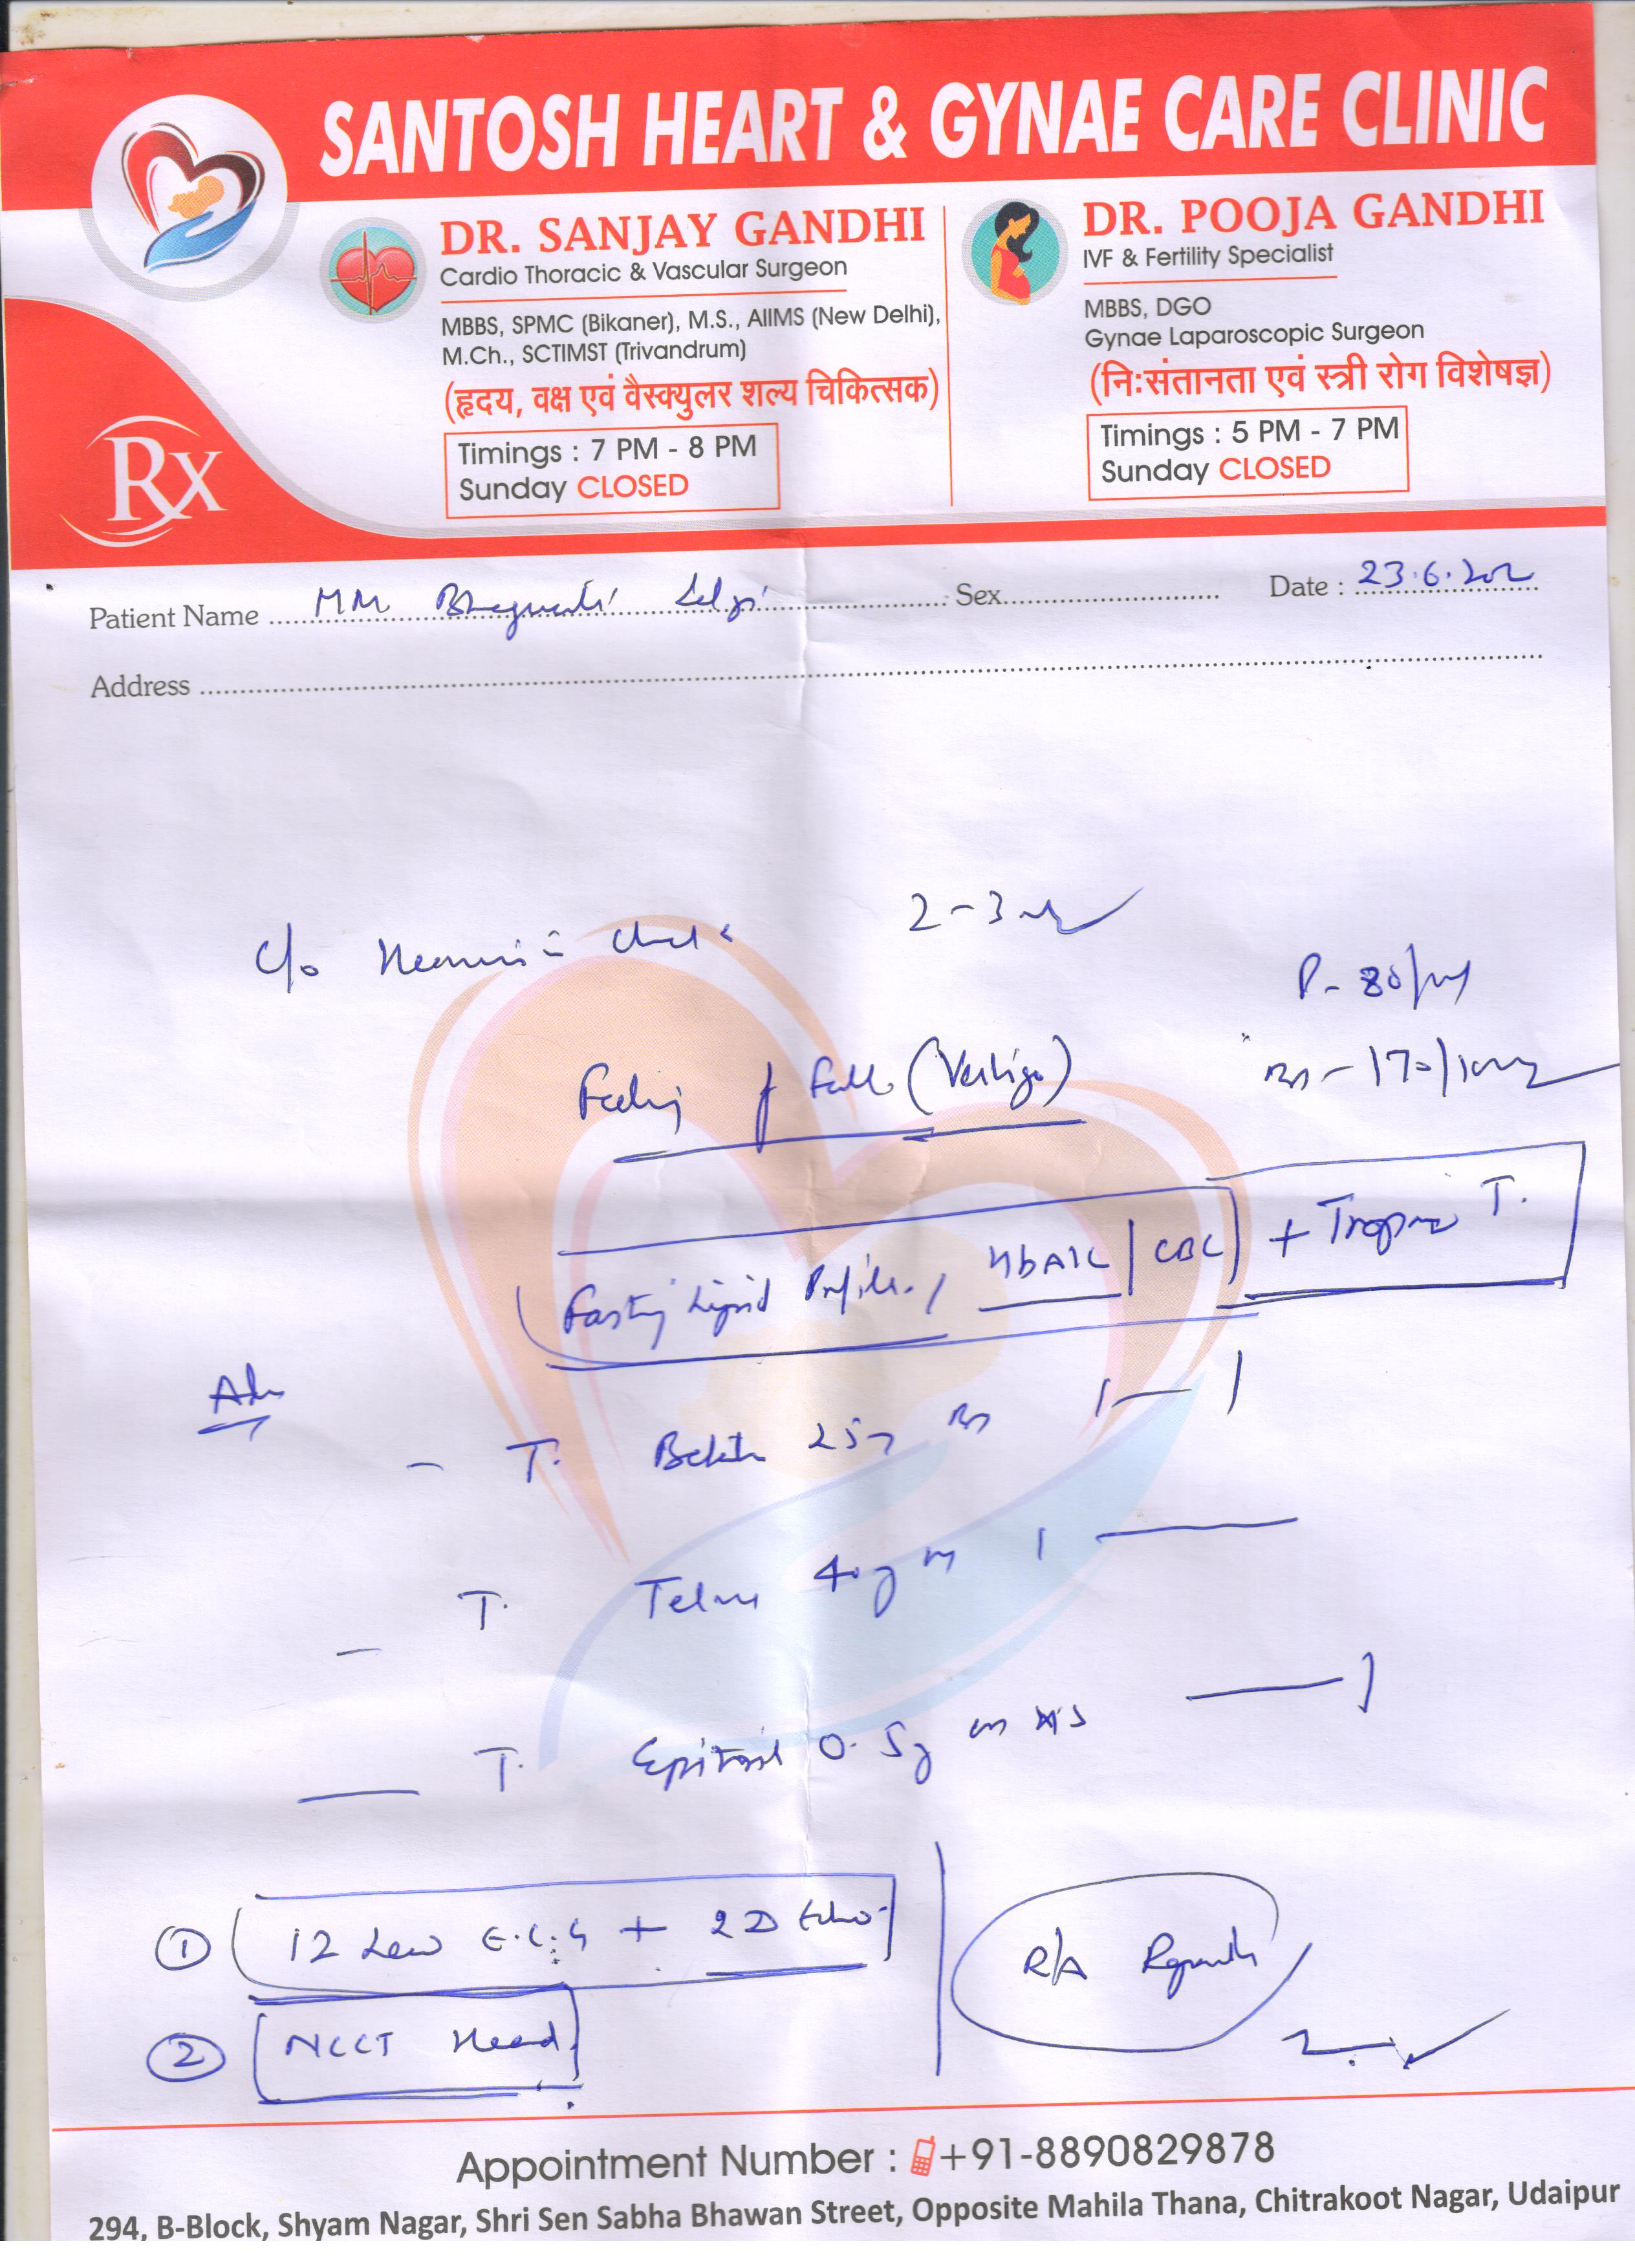 SANTOSH HEART & GYNAE CARE CLINIC
DR. SANJAY GANDHI
Cardio Thoracic & Vascular Surgeon
MBBS, SPMC (Bikaner), M.S., AIIMS (New Delhi),
M.Ch., SCTIMST (Trivandrum)
(हृदय, वक्ष एवं वैस्क्युलर शल्य चिकित्सक)
Timings : 7 PM - 8 PM
Sunday CLOSED
DR. POOJA GANDHI
IVF & Fertility Specialist
MBBS, DGO
Gynae Laparoscopic Surgeon
(नि:संतानता एवं स्त्री रोग विशेषज्ञ)
Timings : 5 PM - 7 PM
Sunday CLOSED
Rx
Patient Name Sex Date : 23.6.202
Address
c/o 2-3
P- 80/
Feeling of Fall (Vertigo)
170/100
Fasting Lipid Profile / HbA1C / CBC + T.
Adv
- T. 25 1 — 1
- T. 40 1 —
— T. 0.5 HS — 1
① 12 Lead E.C.G + 2D Echo
② NCCT Head
R/A
Appointment Number : +91-8890829878
294, B-Block, Shyam Nagar, Shri Sen Sabha Bhawan Street, Opposite Mahila Thana, Chitrakoot Nagar, Udaipur